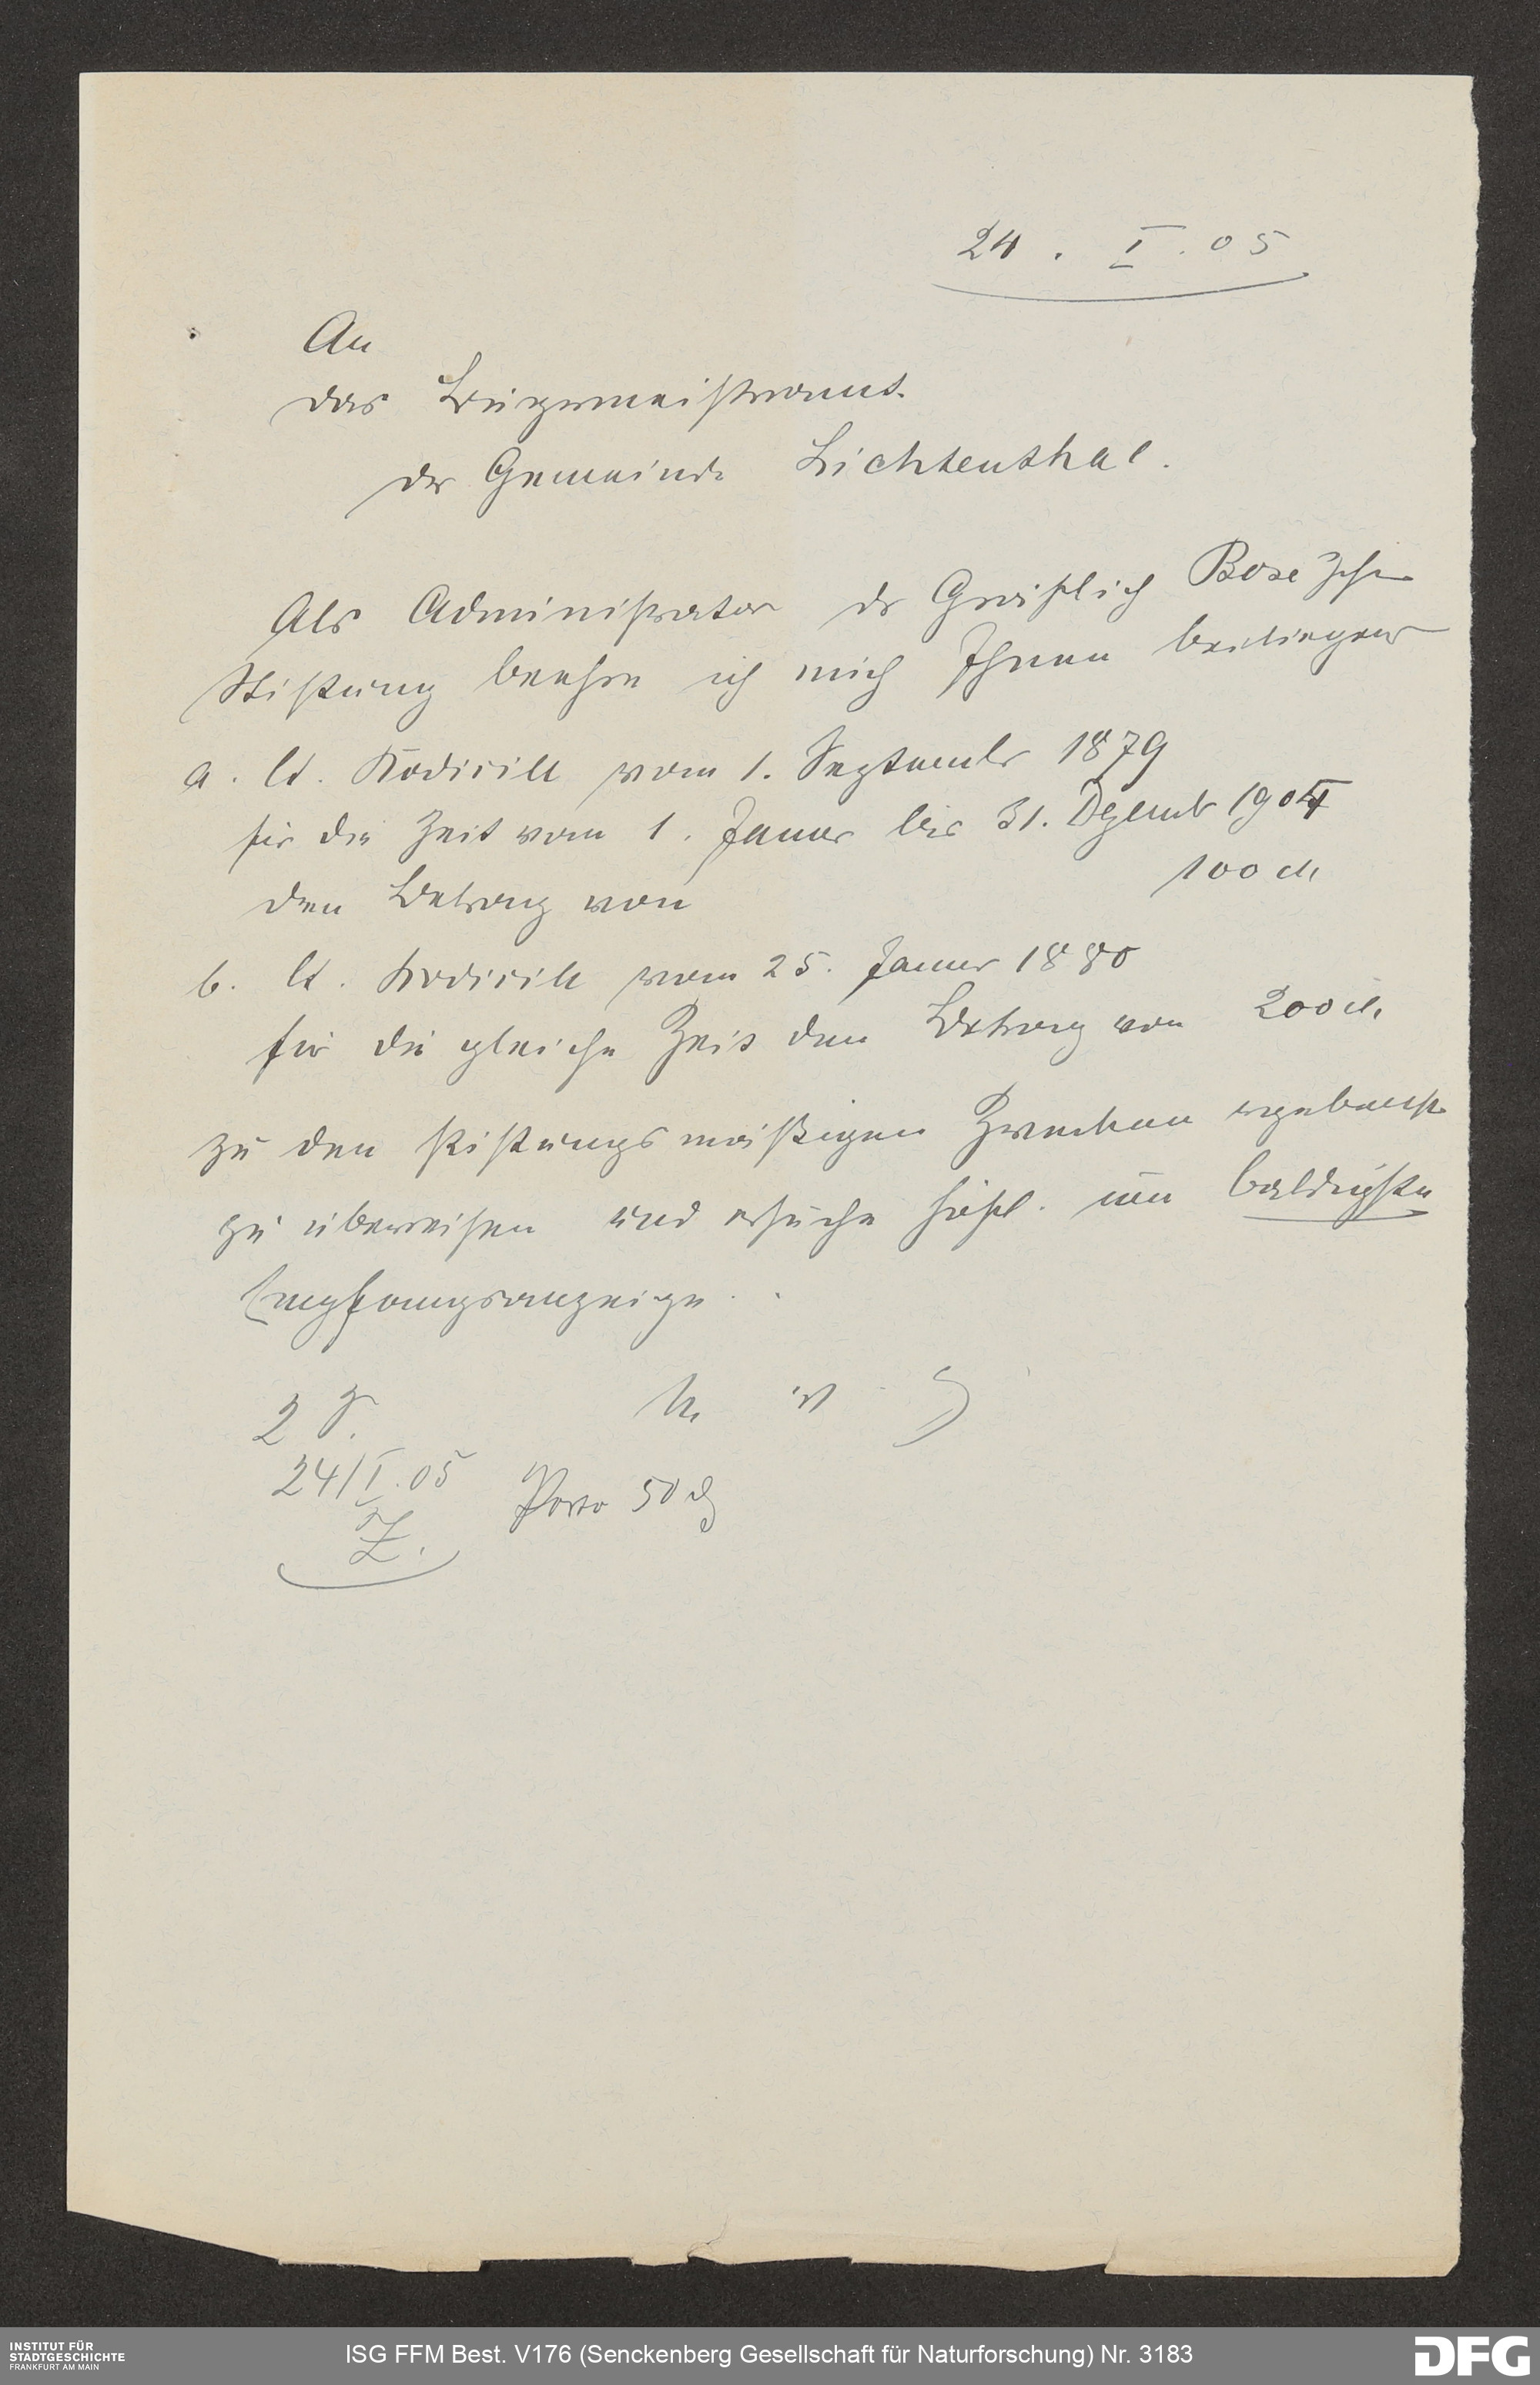 24. I. 05
An
das Bürgermeisteramt
der Gemeinde Lichtenthal.
Als Administrator der Gräflich Bose'schen
Stiftung beehre ich mich Ihnen beiliegend
a. lt. Kodicill vom 1. September 1879
für die Zeit vom 1. Januar bis 31. Dezember 1904
den Betrag von 100 M
b. lt. Kodicill vom 25. Januar 1880
für die gleiche Zeit den Betrag von 200 M.
zu den stiftungsmäßigen Zwecken ergebenst
zu überweisen und ersuche höfl. um baldigste
Empfangsanzeige.
24/I. 05 Porto 50 ₰
Z.
INSTITUT FÜR
STADTGESCHICHTE
FRANKFURT AM MAIN
ISG FFM Best. V176 (Senckenberg Gesellschaft für Naturforschung) Nr. 3183
DFG